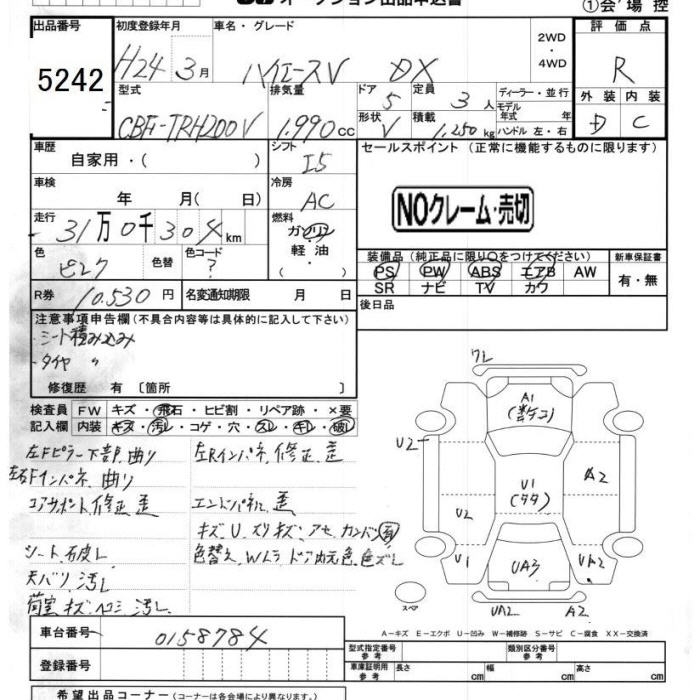 オークション出品申込書
①会場控
出品番号 初度登録年月 車名・グレード 2WD ・ 4WD 評価点
5242 H24 3月 ハイエースV DX R
型式 排気量 ドア 定員 ディーラー・並行 外装 内装
CBF-TRH200V 1,990cc 5 3人 モデル年式 年 D C
形状 積載 ハンドル 左・右
V 1,250kg
車歴 自家用・( ) シフト I5 セールスポイント (正常に機能するものに限ります)
車検 年 月( 日) 冷房 AC
NOクレーム・売切
走行 31万0千304km 燃料 ガソリン 軽油
色 ピンク 色替 色コード ?
装備品(純正品に限り○をつけてください) 新車保証書
PS PW ABS エアB AW 有・無
SR ナビ TV カワ
R券 10,530円 名変通知期限 月 日 後日品
注意事項申告欄(不具合内容等は具体的に記入して下さい)
・シート積み込み
・タイヤ 〃
修復歴 有 〔箇所 〕
検査員 FW キズ・飛石・ヒビ割・リペア跡・×要
記入欄 内装 キズ・汚レ・コゲ・穴・スレ・キレ・破レ
左Fピラー下部 曲り 左Rインパネ 修正 歪
左右Fインパネ 曲り
コアサポート 修正 歪 エンドパネル 歪
キズ、U、スリキズ、アセ、カンバン有
シート 破レ 色替え、Wトラ ドア内元色、色ズレ
天バリ 汚レ
荷室 キズ ヘコミ 汚レ
ワレ
A1
U2 A2
U1
U2
U1 UA3 UA2
スペア
UA2 A2
A-キズ E-エクボ U-凹み W-補修跡 S-サビ C-腐食 XX-交換済
車台番号 0158784
登録番号
型式指定番号 参考 類別区分番号 参考
車庫証明用 参考 長さ cm 幅 cm 高さ cm
希望出品コーナー (コーナーは各会場により異なります。)